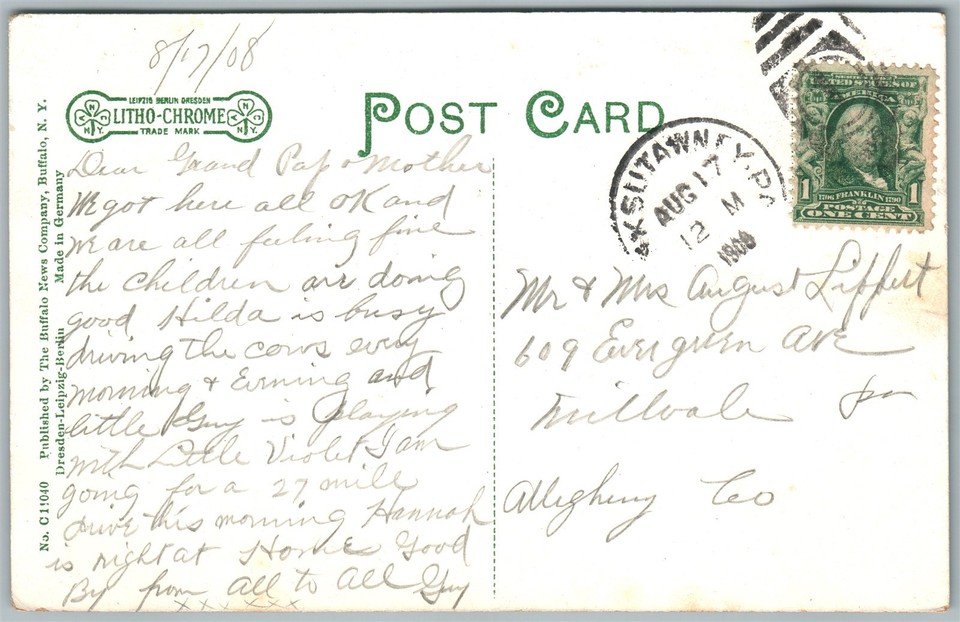 8/17/08
LEIPZIG BERLIN DRESDEN
LITHO-CHROME
TRADE MARK
N
N.Y.
N
N.Y.
POST CARD
No. C11040 Published by The Buffalo News Company, Buffalo, N. Y.
Dresden-Leipzig-Berlin Made in Germany
Dear Grand Pap & Mother
We got here all OK and
we are all feeling fine
the children are doing
good Hilda is busy
driving the cows every
morning & Evening and
little Guy is playing
with Little Violet I am
going for a 27 mile
drive this morning Hannah
is right at Home Good
By from all to All Guy
xx xxx
XSUTAWNEY, PA
AUG 17
12 M
1908
UNITED STATES OF
AMERICA
1 1706 FRANKLIN 1790 1
POSTAGE
ONE CENT
Mr & Mrs August Lippert
609 Evergreen Ave
Millvale Pa
Allegheny Co